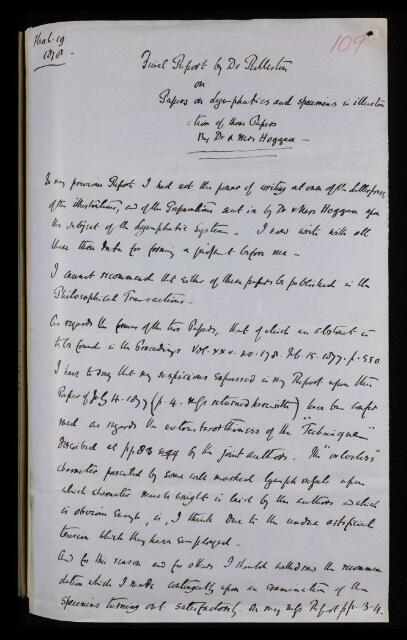 March. 19
1878 -
109
Final Report by Dr Rolleston
on
Papers on Lymphatics and specimens in illustra
= tion of those Papers
By Dr & Mrs Hoggan -
In my previous Report I had not the power of writing at once of the Letterpress,
of the illustrations, and of the Preparations sent in by Dr & Mrs Hoggan upon
the subject of the Lymphatic System - I now write with all
these three Data for forming a judgment before me -
I cannot recommend that either of these papers be published in the
Philosophical Transactions -
As regards the former of the two Papers, that of which an abstract is
to be found in the Proceedings Vol. xxv. no. 178. Feb. 15. 1877. p. 550
I have to say that my suspicions expressed in my Report upon this
Paper of July 4. 1877 (p. 4. returned herewith) have been confir
med as regards the untrustworthiness of the "Technique"
described at pp. 83 by the joint authors. The "valveless"
character presented by some well marked lymph vessels upon
which character much weight is laid by the authors & which
is obvious enough, is, I think due to the undue artificial
tension which they have employed -
And for this reason and for others I should withdraw the recommen
dation which I made contingently upon an examination of the
specimens turning out satisfactorily in my Report pp. 3-4.